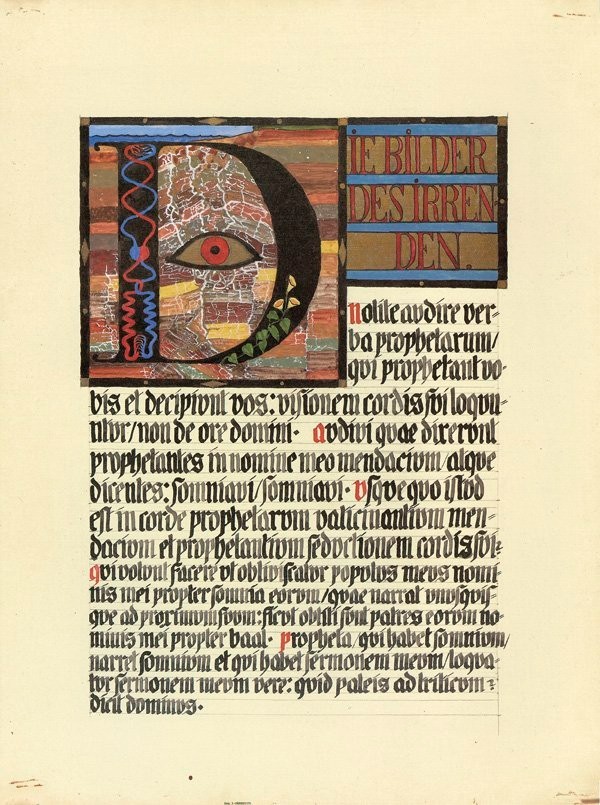 DIE BILDER
DES IRREN
DEN.
nolite avdire ver=
ba prophetarum/
qvi prophetant vo=
bis et decipivnt vos: visionem cordis svi loqvu=
ntvr/non de ore domini. avdivi qvae dixervnt
prophetantes in nomine meo mendacivm/atqve
dicentes: somniavi/somniavi. vsqve qvo istvd
est in corde prophetarvm vaticinantivm men=
dacivm et prophetantivm sedvctionem cordis svi=
qvi volvnt facere vt obliviscatvr popvlvs mevs nomi=
nis mei propter somnia eorvm/qvae narrat vnvsqvis=
qve ad proximvm svvm: sicvt obliti svnt patres eorvm no=
minis mei propter baal. propheta/qvi habet somnivm/
narret somnivm et qvi habet sermonem mevm/loqva=
tvr sermonem mevm vere: qvid paleis ad triticvm?
dicit dominvs.